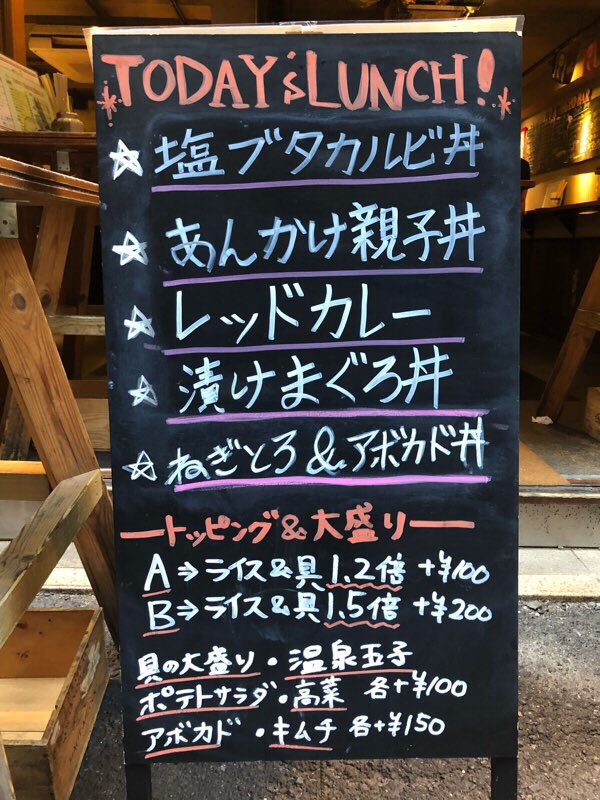 TODAY'S LUNCH!
☆塩ブタカルビ丼
☆あんかけ親子丼
☆レッドカレー
☆漬けまぐろ丼
☆ねぎとろ&アボカド丼
ートッピング&大盛りー
A→ライス&具1.2倍 +¥100
B→ライス&具1.5倍 +¥200
具の大盛り・温泉玉子
ポテトサラダ・高菜 各+¥100
アボカド・キムチ 各+¥150